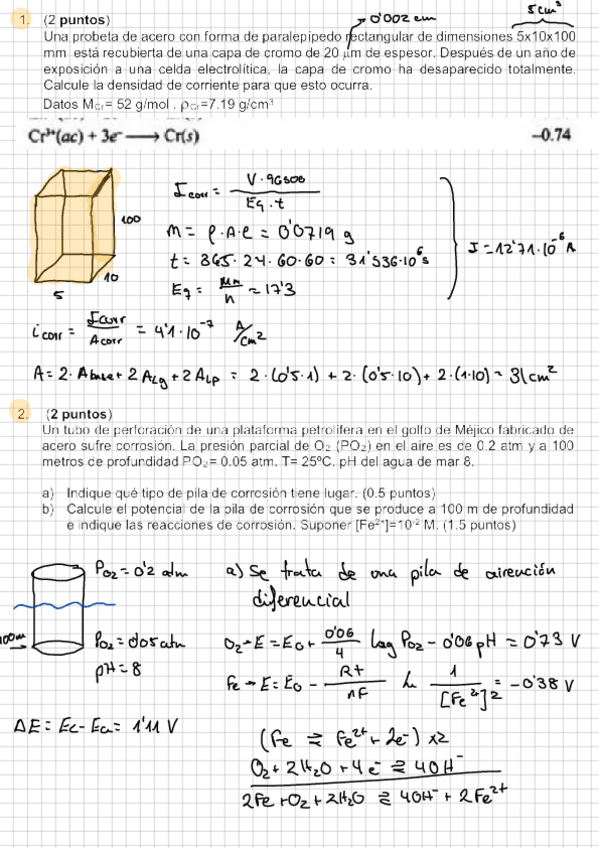 5 cm³
0'002 cm
1. (2 puntos)
Una probeta de acero con forma de paralepípedo rectangular de dimensiones 5x10x100
mm está recubierta de una capa de cromo de 20 μm de espesor. Después de un año de
exposición a una celda electrolítica, la capa de cromo ha desaparecido totalmente.
Calcule la densidad de corriente para que esto ocurra.
Datos M Cr= 52 g/mol . ρCr=7.19 g/cm³
Cr³⁺(ac) + 3e⁻ ⟶ Cr(s) −0.74
I corr = V·96500 / Eq·t
m = ρ·A·e = 0'0719 g
t = 365·24·60·60 = 31'536·10⁶ s
Eq = Mm / n = 17'3
I = 12'71·10⁻⁶ A
100
10
5
i corr = I corr / A corr = 4'1·10⁻⁷ A/cm²
A = 2·A base + 2 A Lg + 2 A Lp = 2·(0'5·1) + 2·(0'5·10) + 2·(1·10) = 31 cm²
2. (2 puntos)
Un tubo de perforación de una plataforma petrolífera en el golfo de Méjico fabricado de
acero sufre corrosión. La presión parcial de O₂ (PO₂) en el aire es de 0.2 atm y a 100
metros de profundidad PO₂= 0.05 atm. T= 25ºC. pH del agua de mar 8.
a) Indique qué tipo de pila de corrosión tiene lugar. (0.5 puntos)
b) Calcule el potencial de la pila de corrosión que se produce a 100 m de profundidad
e indique las reacciones de corrosión. Suponer [Fe²⁺]=10⁻² M. (1.5 puntos)
P O₂ = 0'2 atm
a) Se trata de una pila de aireación
diferencial
100m
P O₂ = 0'05 atm
pH = 8
O₂ → E = E₀ + 0'06/4 log P O₂ − 0'06 pH = 0'73 V
Fe → E = E₀ − Rt/nF ln 1/[Fe²⁺]² = −0'38 V
ΔE = Ec − Ea = 1'11 V
(Fe ⇄ Fe²⁺ + 2e⁻) x2
O₂ + 2H₂O + 4e⁻ ⇄ 4OH⁻
2Fe + O₂ + 2H₂O ⇄ 4OH⁻ + 2Fe²⁺